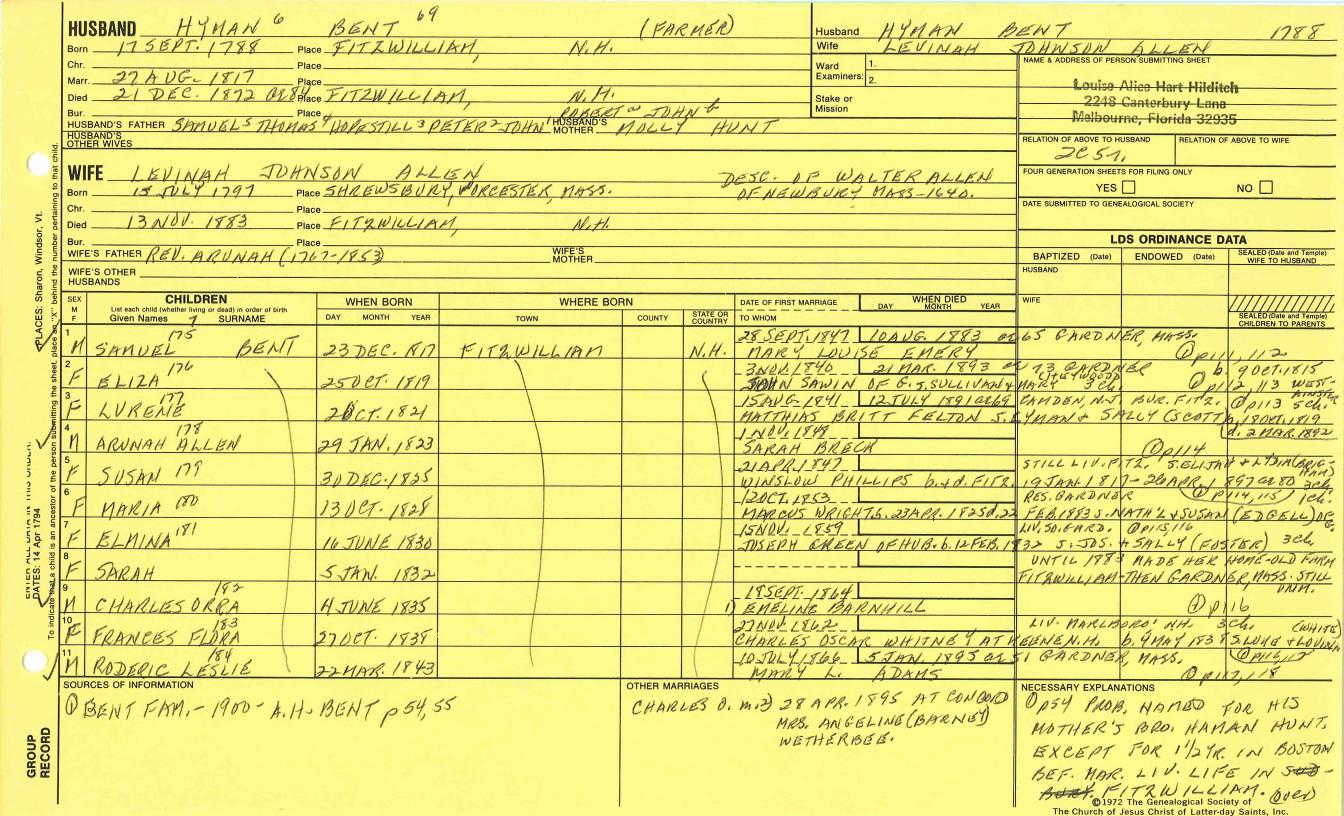 HUSBAND HYMAN 6 BENT 69 (FARMER)
Born 17 SEPT. 1788 Place FITZWILLIAM, N.H.
Chr. Place
Marr. 27 AUG. 1817 Place
Died 21 DEC. 1872 Place FITZWILLIAM, N.H.
Bur. Place ROBERT a JOHN b
HUSBAND'S FATHER SAMUEL 5 THOMAS 4 HOPESTILL 3 PETER 2 JOHN 1 HUSBAND'S MOTHER MOLLY HUNT
HUSBAND'S OTHER WIVES
Husband HYMAN BENT 1788
Wife LEVINAH JOHNSON ALLEN
Ward Examiners: 1. 2.
Stake or Mission
NAME & ADDRESS OF PERSON SUBMITTING SHEET
Louise Alice Hart Hilditch
2248 Canterbury Lane
Melbourne, Florida 32935
RELATION OF ABOVE TO HUSBAND RELATION OF ABOVE TO WIFE
2C5r.
FOUR GENERATION SHEETS FOR FILING ONLY
YES NO
DATE SUBMITTED TO GENEALOGICAL SOCIETY
WIFE LEVINAH JOHNSON ALLEN DESC. OF WALTER ALLEN
Born 15 JULY 1797 Place SHREWSBURY, WORCESTER, MASS. OF NEWBURY MASS-1640.
Chr. Place
Died 13 NOV. 1883 Place FITZWILLIAM, N.H.
Bur. Place
WIFE'S FATHER REV. ARUNAH (1767-1853) WIFE'S MOTHER
WIFE'S OTHER HUSBANDS
LDS ORDINANCE DATA
BAPTIZED (Date) ENDOWED (Date) SEALED (Date and Temple) WIFE TO HUSBAND
HUSBAND
WIFE
SEALED (Date and Temple) CHILDREN TO PARENTS
SEX M F
CHILDREN
List each child (whether living or dead) in order of birth
Given Names 7 SURNAME
WHEN BORN DAY MONTH YEAR
WHERE BORN TOWN COUNTY STATE OR COUNTRY
DATE OF FIRST MARRIAGE TO WHOM
WHEN DIED DAY MONTH YEAR
1 M SAMUEL 175 BENT 23 DEC. 1817 FITZWILLIAM N.H. 28 SEPT. 1847 10 AUG. 1883 ae 65 GARDNER, MASS.
MARY LOUISE EMERY ① p111, 112
2 F ELIZA 176 25 OCT. 1819 3 NOV. 1840 21 MAR. 1893 ae 73 GARDNER b. 9 OCT. 1815
JOHN SAWIN OF G. S. SULLIVAN & MARY (HEYWOOD) 3 ch. ① p112, 113 WESTMINSTER
3 F LURENE 177 2 OCT. 1821 15 AUG. 1841 12 JULY 1891 ae 69 CAMDEN, N.J. BUR. FITZ. ① p113 5 ch.
MATTHIAS BRITT FELTON S. HYMAN & SALLY (SCOTT) b. 18 OCT. 1819
d. 2 MAR. 1892
4 M ARUNAH ALLEN 178 29 JAN. 1823 1 NOV. 1848
SARAH BRECK ① p114
5 F SUSAN 179 30 DEC. 1825 21 APR. 1847 STILL LIV. FITZ. S. ELIJAH & LYDIA (BRIGHAM)
WINSLOW PHILLIPS b. & d. FITZ. 19 JAN. 1817 - 26 APR. 1897 ae 80 3 ch.
6 F MARIA 180 13 OCT. 1828 12 OCT. 1853 RES. GARDNER ① p114, 115 1 ch.
MARCUS WRIGHT b. 23 APR. 1825 d. 22 FEB. 1883 S. NATH'L & SUSAN (EDGELL) OF G.
7 F ELMINA 181 16 JUNE 1830 15 NOV. 1859 LIV. SO. GARD. ① p115, 116
JOSEPH GREEN OF HUB. b. 12 FEB. 1832 S. JOS. & SALLY (FOSTER) 3 ch.
8 F SARAH 5 JAN. 1832 UNTIL 1983 MADE HER HOME-OLD FARM
FITZWILLIAM-THEN GARDNER, MASS. STILL UNM.
9 M CHARLES ORRA 182 4 JUNE 1835 18 SEPT. 1864
1) EMELINE BARNHILL ① p116
10 F FRANCES FLORA 183 27 OCT. 1838 27 NOV. 1862 LIV. MARLBORO N.H. 3 ch. (WHITE)
CHARLES OSCAR WHITNEY AT KEENE N.H. b. 4 MAY 1838 S. LUKE & LOVINA
11 M RODERIC LESLIE 184 22 MAR. 1843 10 JULY 1866 5 JAN. 1895 ae 51 GARDNER, MASS.
MARY L. ADAMS ① p117, 118
SOURCES OF INFORMATION
① BENT FAM. - 1900 - A.H. BENT p 54, 55
OTHER MARRIAGES
CHARLES O. m. 2) 28 APR. 1895 AT CONCORD
MRS. ANGELINE (BARNEY)
WETHERBEE.
NECESSARY EXPLANATIONS
① p54 PROB. NAMED FOR HIS
MOTHER'S BRO. HAMAN HUNT.
EXCEPT FOR 1 1/2 YR. IN BOSTON
BEF. MAR. LIV. LIFE IN
FITZWILLIAM. (over)
©1972 The Genealogical Society of
The Church of Jesus Christ of Latter-day Saints, Inc.
GROUP RECORD
ENTER ALL DATA IN THIS ORDER:
DATES: 14 Apr 1794
PLACES: Sharon, Windsor, Vt.
To indicate that a child is an ancestor of the person submitting the sheet, place an "X" behind the number pertaining to that child.